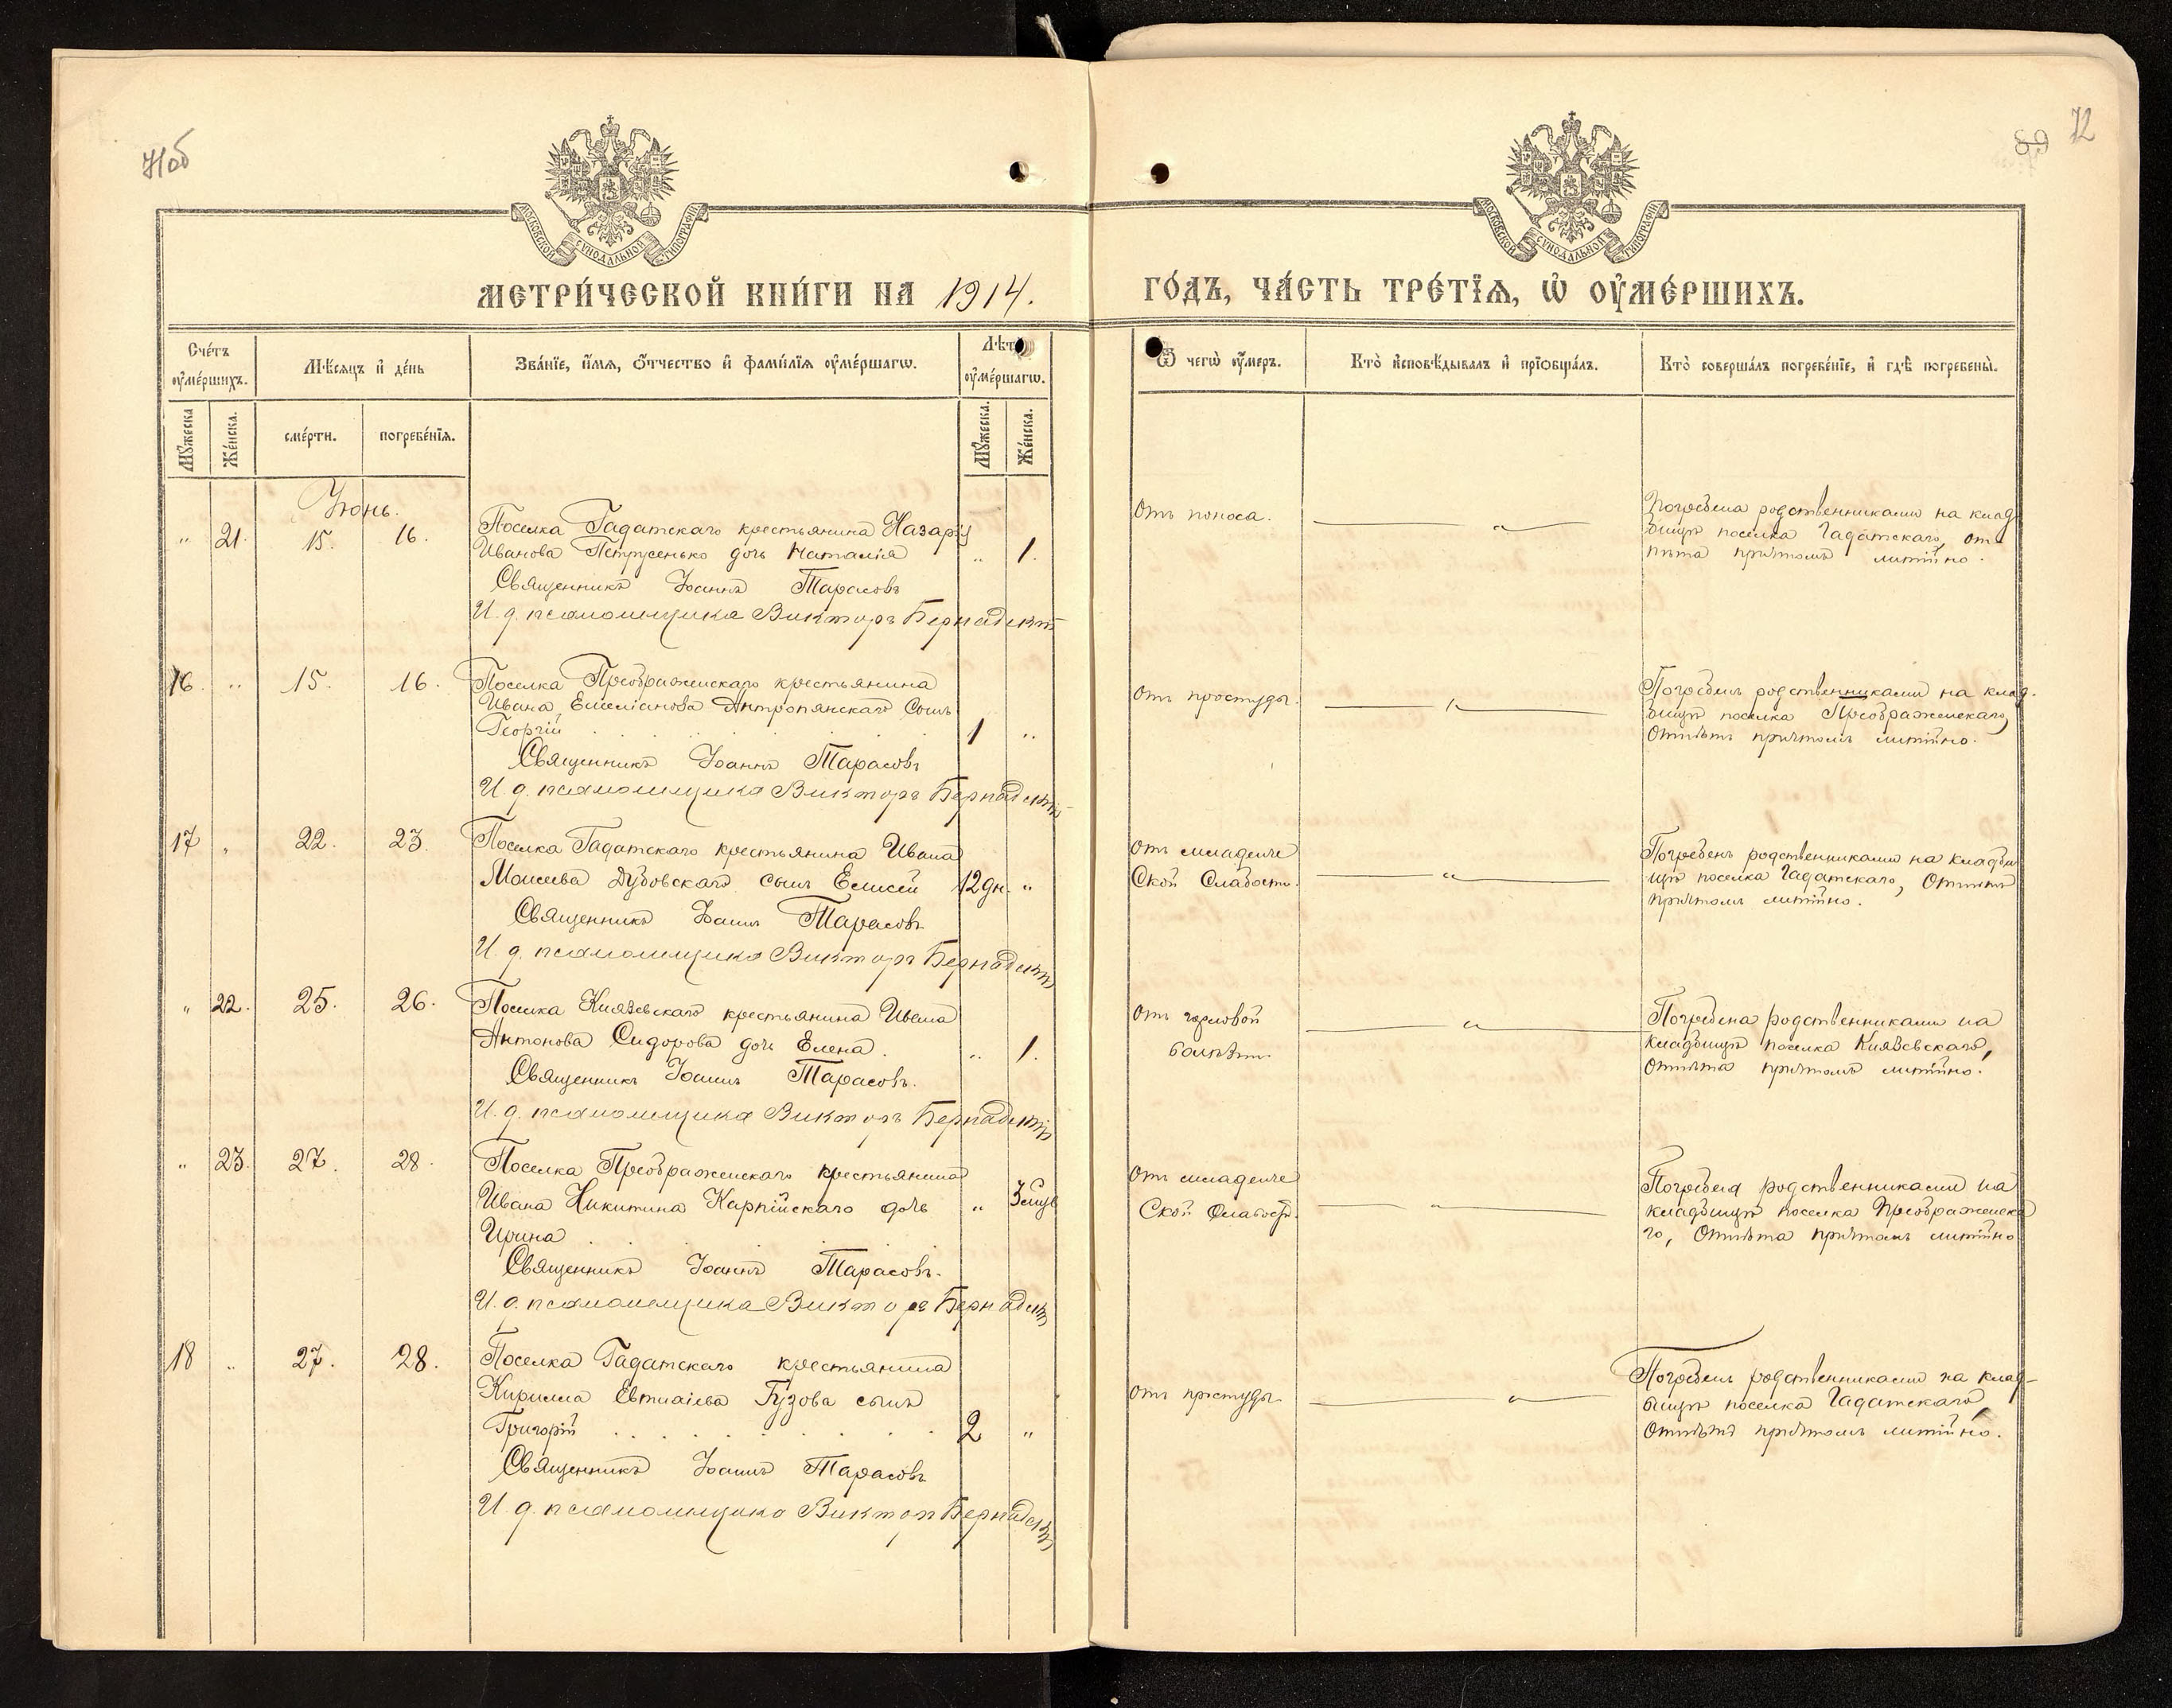 71об
72
89
МОСКОВСКОЙ СУНОДАЛЬНОЙ ТИПОГРАФІИ
МОСКОВСКОЙ СУНОДАЛЬНОЙ ТИПОГРАФІИ
МЕТРИ́ЧЕСКОЙ КНИ́ГИ НА 1914.
ГО́ДЪ, ЧА́СТЬ ТРЕ́ТЇѦ, Ѡ ОУМЕ́РШИХЪ.
Сче́тъ оуме́ршихъ.
Мѣ́сяцъ и де́нь
Зва́нїе, и́мя, о́тчество и фами́лїя оуме́ршагѡ.
Лѣт
оуме́ршагѡ.
Ѿ чегѡ̀ оу́меръ.
Кто̀ исповѣ́дывалъ и прїѡбща́лъ.
Кто̀ соверша́лъ погребе́нїе, и гдѣ̀ погребены̀.
Мꙋжеска
Же́нска.
сме́рти.
погребе́нїя.
Мꙋжеска.
Же́нска.
Іюнь.
" 21. 15. 16.
Поселка Гадатскаго крестьянина Назарія
Иванова Петрусенько дочь Наталія " 1.
Священникъ Іоаннъ Тарасовъ
И. д. псаломщика Викторъ Бернадскій
Отъ поноса.
"
Погребена родственниками на клад-
бищѣ поселка Гадатскаго, от-
пѣта причтомъ литійно.
16. " 15. 16.
Поселка Преображенскаго крестьянина
Ивана Емеліанова Антропянскаго сынъ
Георгій 1 "
Священникъ Іоаннъ Тарасовъ
И. д. псаломщика Викторъ Бернадскій
Отъ простуды.
"
Погребенъ родственниками на клад-
бищѣ поселка Преображенскаго,
Отпѣтъ причтомъ литійно.
17 " 22. 23.
Поселка Гадатскаго крестьянина Ивана
Моисеева Дубовскаго сынъ Елисей 12 дн. "
Священникъ Іоаннъ Тарасовъ
И. д. псаломщика Викторъ Бернадскій
Отъ младенче
Ской Слабости.
"
Погребенъ родственниками на кладби
щѣ поселка Гадатскаго, Отпѣтъ
причтомъ литійно.
" 22. 25. 26.
Поселка Князевскаго крестьянина Ивана
Антонова Сидорова дочь Елена. " 1.
Священникъ Іоаннъ Тарасовъ.
И. д. псаломщика Викторъ Бернадскій
Отъ горловой
болѣзни.
"
Погребена родственниками на
кладбищѣ поселка Князевскаго,
Отпѣта причтомъ литійно.
" 23. 27. 28.
Поселка Преображенскаго крестьянина
Ивана Никитина Карпійскаго дочь " 3 мця
Ирина
Священникъ Іоаннъ Тарасовъ.
И. д. псаломщика Викторъ Бернадскій
Отъ младенче
Ской Слабости.
"
Погребена родственниками на
кладбищѣ поселка Преображенска
го, Отпѣта причтомъ литійно
18 " 27. 28.
Поселка Гадатскаго крестьянина
Кирилла Гузова сынъ
Григорій 2 "
Священникъ Іоаннъ Тарасовъ
И. д. псаломщика Викторъ Бернадскій
Отъ простуды
"
Погребенъ родственниками на клад-
бищѣ поселка Гадатскаго,
Отпѣтъ причтомъ литійно.